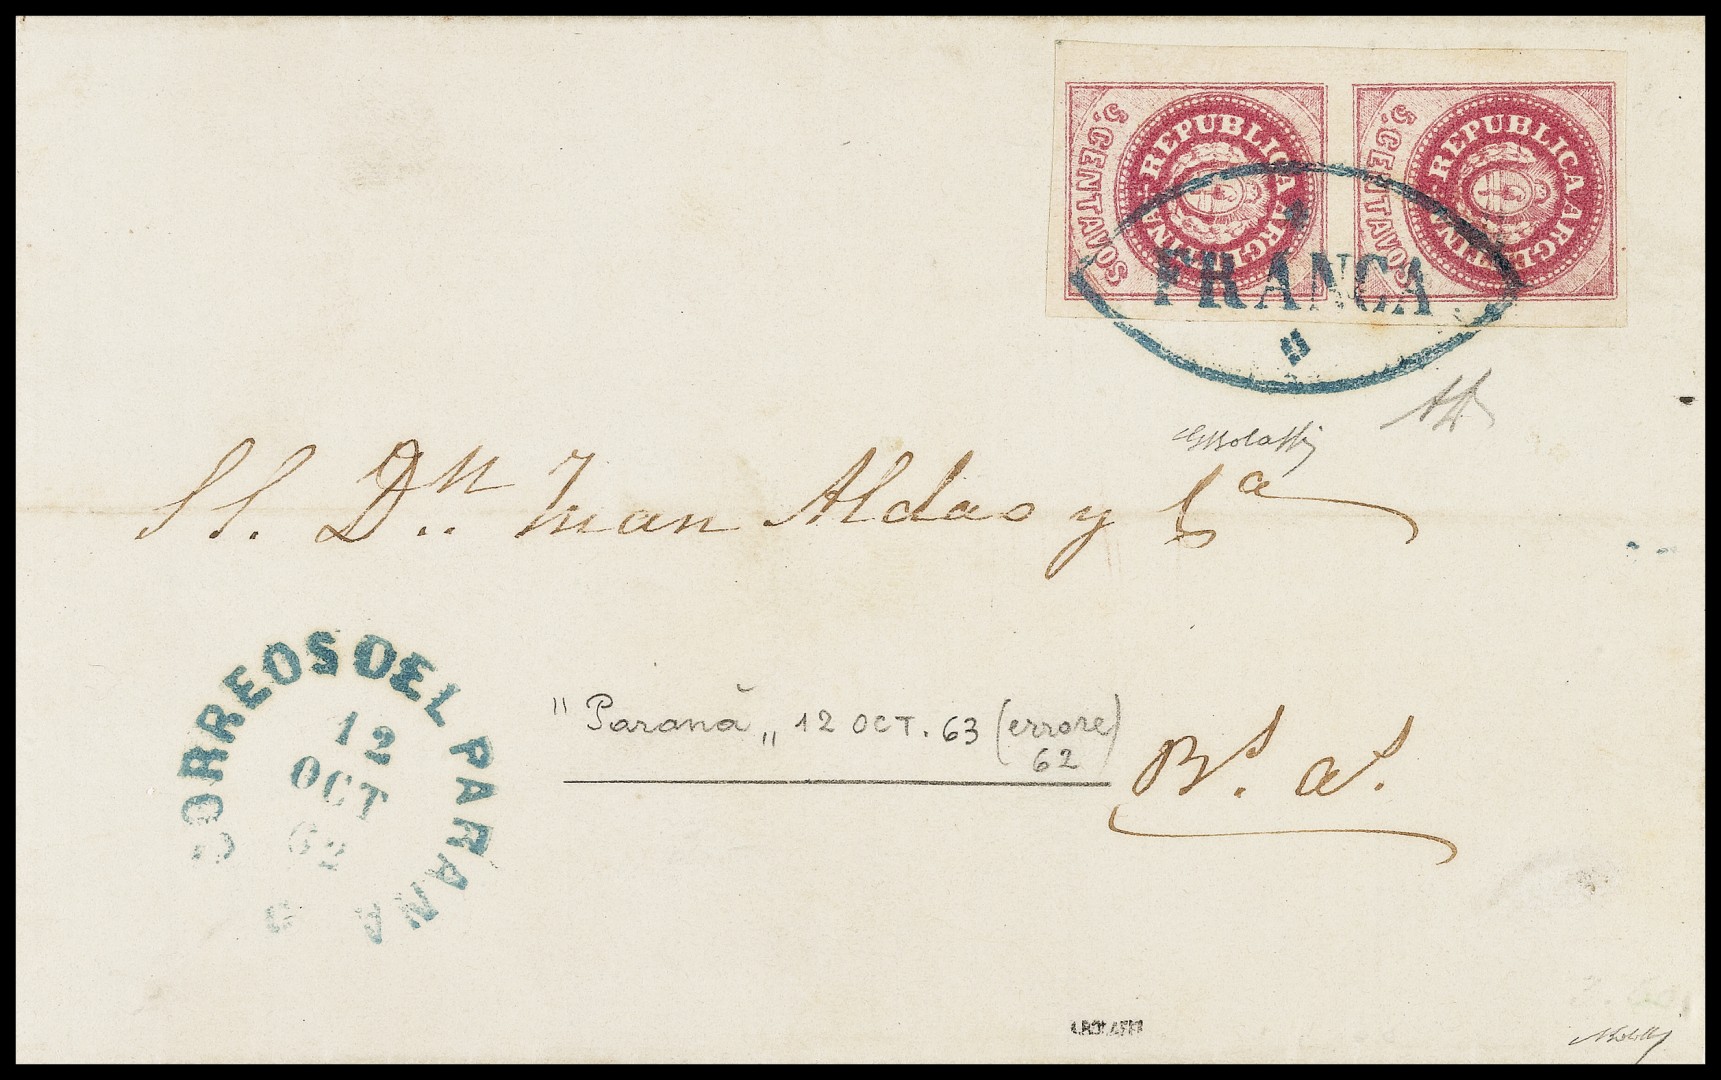 5, CENTAVOS REPUBLICA ARGENTINA
5, CENTAVOS REPUBLICA ARGENTINA
FRANCA
SS. Dn.. Juan Aldao y Ca
CORREOS DEL PARANA
12
OCT
62
"Paranà„ 12 OCT. 63 (errore)
62
Bs. as.